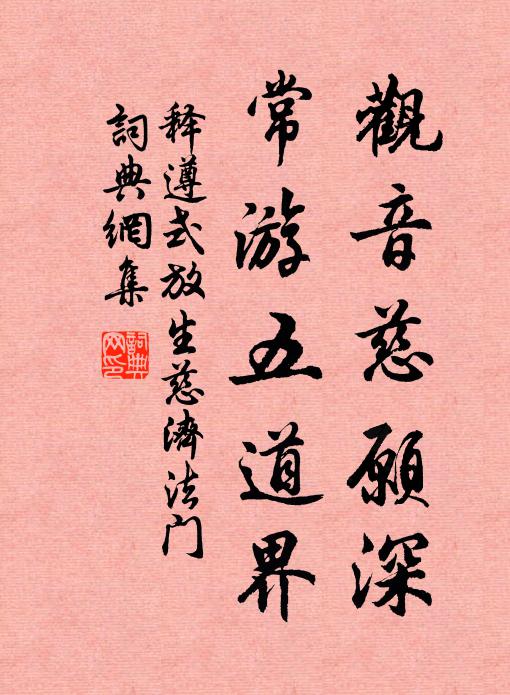 觀音慈願深
常游五道界
释遵式放生慈濟法门
詞典網集
詞典网印